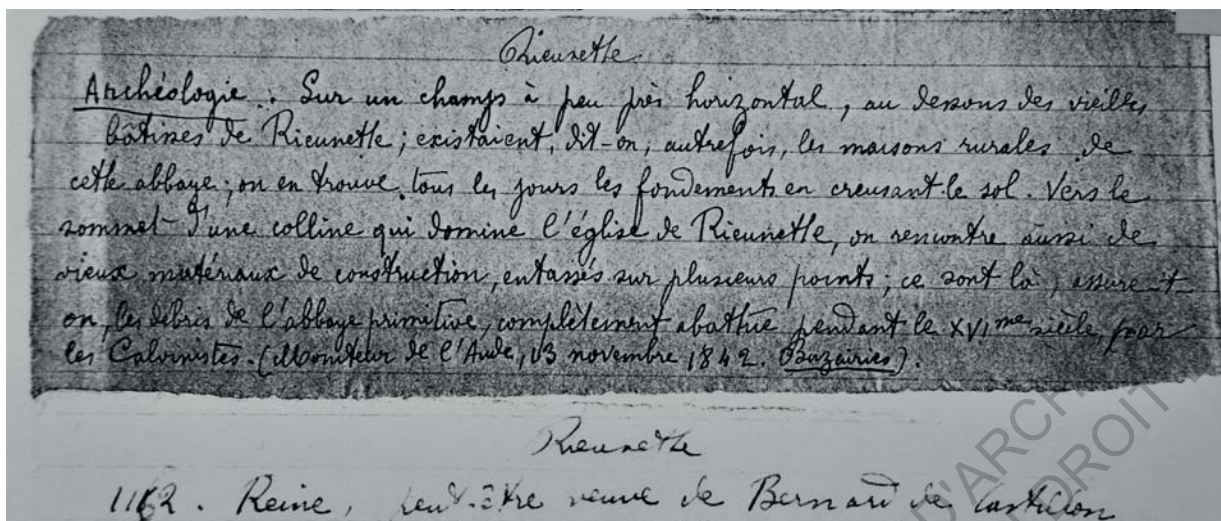 Rieunette
Archéologie. Sur un champs à peu près horizontal, au dessous des vieilles
bâtisses de Rieunette; existaient, dit-on, autrefois, les maisons rurales de
cette abbaye; on en trouve tous les jours les fondements en creusant le sol. Vers le
sommet d'une colline qui domine l'église de Rieunette, on rencontre aussi de
vieux matériaux de construction, entassés sur plusieurs points; ce sont là, assure-t-
on, les débris de l'abbaye primitive, complètement abattue pendant le XVIme siècle, par
les Calvinistes. (Moniteur de l'Aude, 13 novembre 1842. Buzairies).
Rieunette
1162. Reine, peut-être veuve de Bernard de Castillon
D'ARCH
DROIT